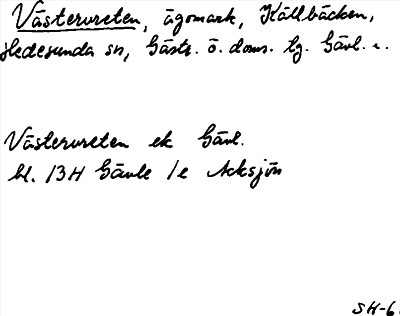 Västervreten, ägomark, Källbäcken,
Hedesunda sn, Gästr. ö. doms. tg. Gävl. l.
Västervreten ek Gävl.
bl. 13H Gävle 1e Acksjön
SH-6